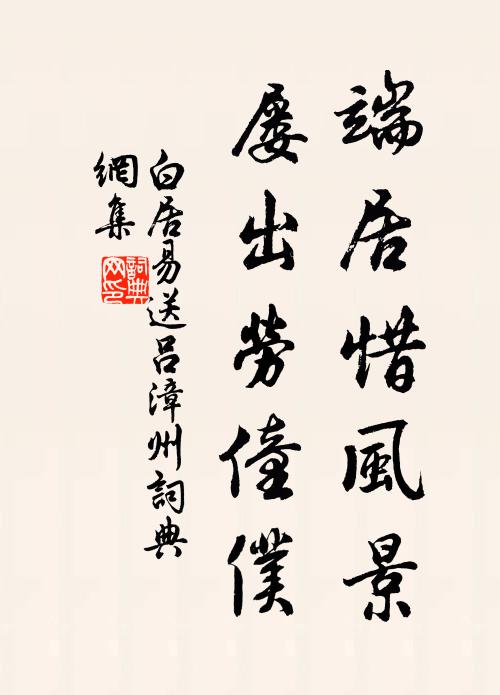 端居惜風景
屢出勞僮僕
白居易送呂漳州詞典
網集
詞典網印